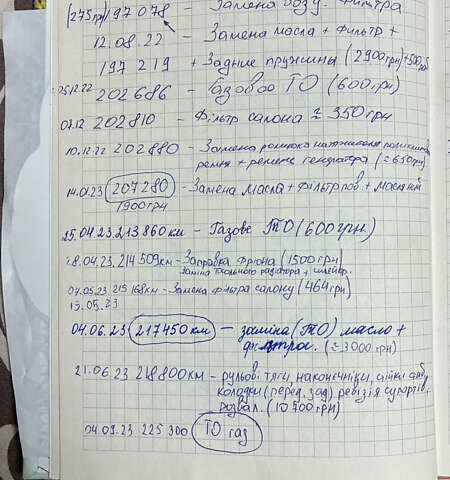 (275грн) 197 078 - Замена возд. фильтра
12.08.22 - Замена масла + фильтр +
197 219 + Задние пружины (2900грн) +500
25.12.22 202 686 - Газовое ТО (600грн)
07.12 202810 - Фільтр салона ≈ 350грн
10.12.22 202880 - Замена ролика натяжителя
ремня + ремень генератора (≈650грн)
14.01.23 207280 - Замена масла + фільтр пов. + масляний
1900грн
25.04.23. 213860км - Газове ТО (600грн.)
8.04.23. 214 509км - Заправка фріона (1500грн)
заміна радіатора +
07.05.23 215 168км - Замена фільтра салону (464грн)
13.05.23
04.06.23 217450км - заміна (ТО) масло +
фільтрои. (≈3000грн)
21.06.23 218800км - рульові тяги, наконечніки,
колодки (перед. зад) ревізія супортів,
розвал. (10 700грн)
04.09.23 225 300 ТО газ